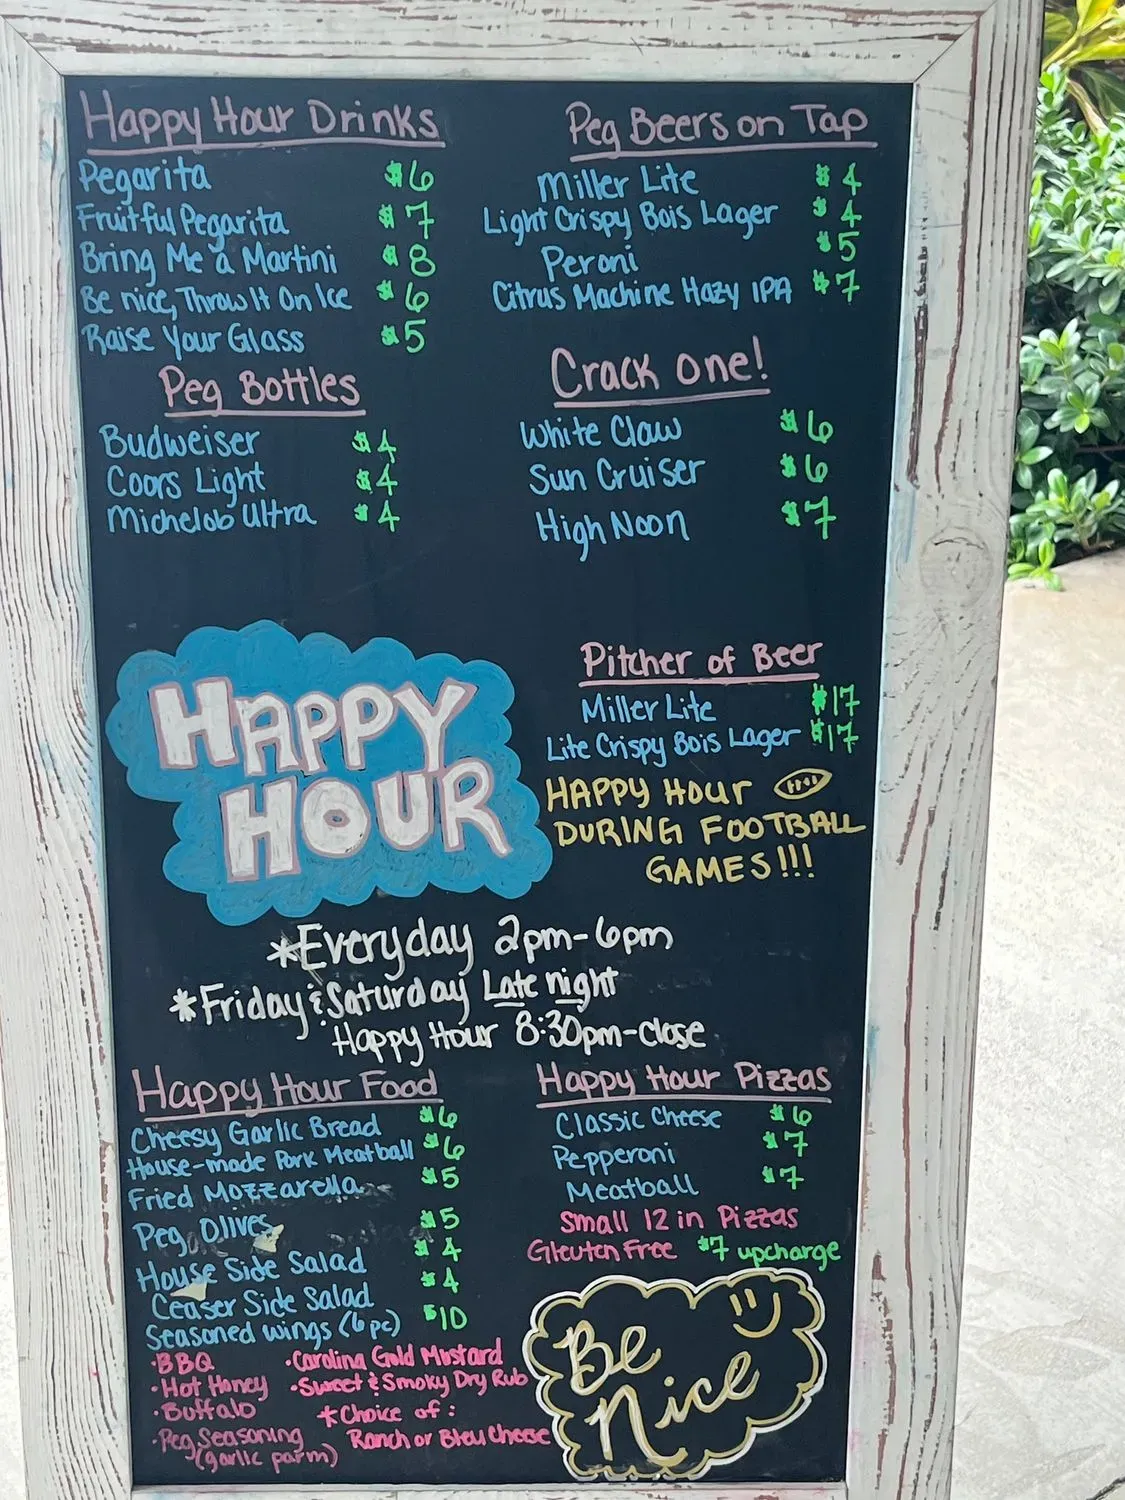 Happy Hour Drinks
Pegarita $6
Fruitful Pegarita $7
Bring Me a Martini $8
Be nice, Throw It On Ice $6
Raise Your Glass $5
Peg Beers on Tap
Miller Lite $4
Light Crispy Bois Lager $4
Peroni $5
Citrus Machine Hazy IPA $7
Peg Bottles
Budweiser $4
Coors Light $4
Michelob Ultra $4
Crack one!
White Claw $6
Sun Cruiser $6
High Noon $7
HAPPY
HOUR
Pitcher of Beer
Miller Lite $17
Lite Crispy Bois Lager $17
HAPPY HOUR
DURING FOOTBALL
GAMES!!!
*Everyday 2pm-6pm
*Friday & Saturday Late night
Happy Hour 8:30pm-close
Happy Hour Food
Cheesy Garlic Bread $6
House-made Pork Meatball $6
Fried Mozzarella $5
Peg Olives $5
House Side Salad $4
Ceaser Side Salad $4
Seasoned wings (6 pc) $10
·BBQ ·Carolina Gold Mustard
·Hot Honey ·Sweet & Smoky Dry Rub
·Buffalo *Choice of:
·Peg Seasoning Ranch or Bleu Cheese
(garlic parm)
Happy Hour Pizzas
Classic Cheese $6
Pepperoni $7
Meatball $7
Small 12 in Pizzas
Gleuten Free $7 upcharge
Be
Nice